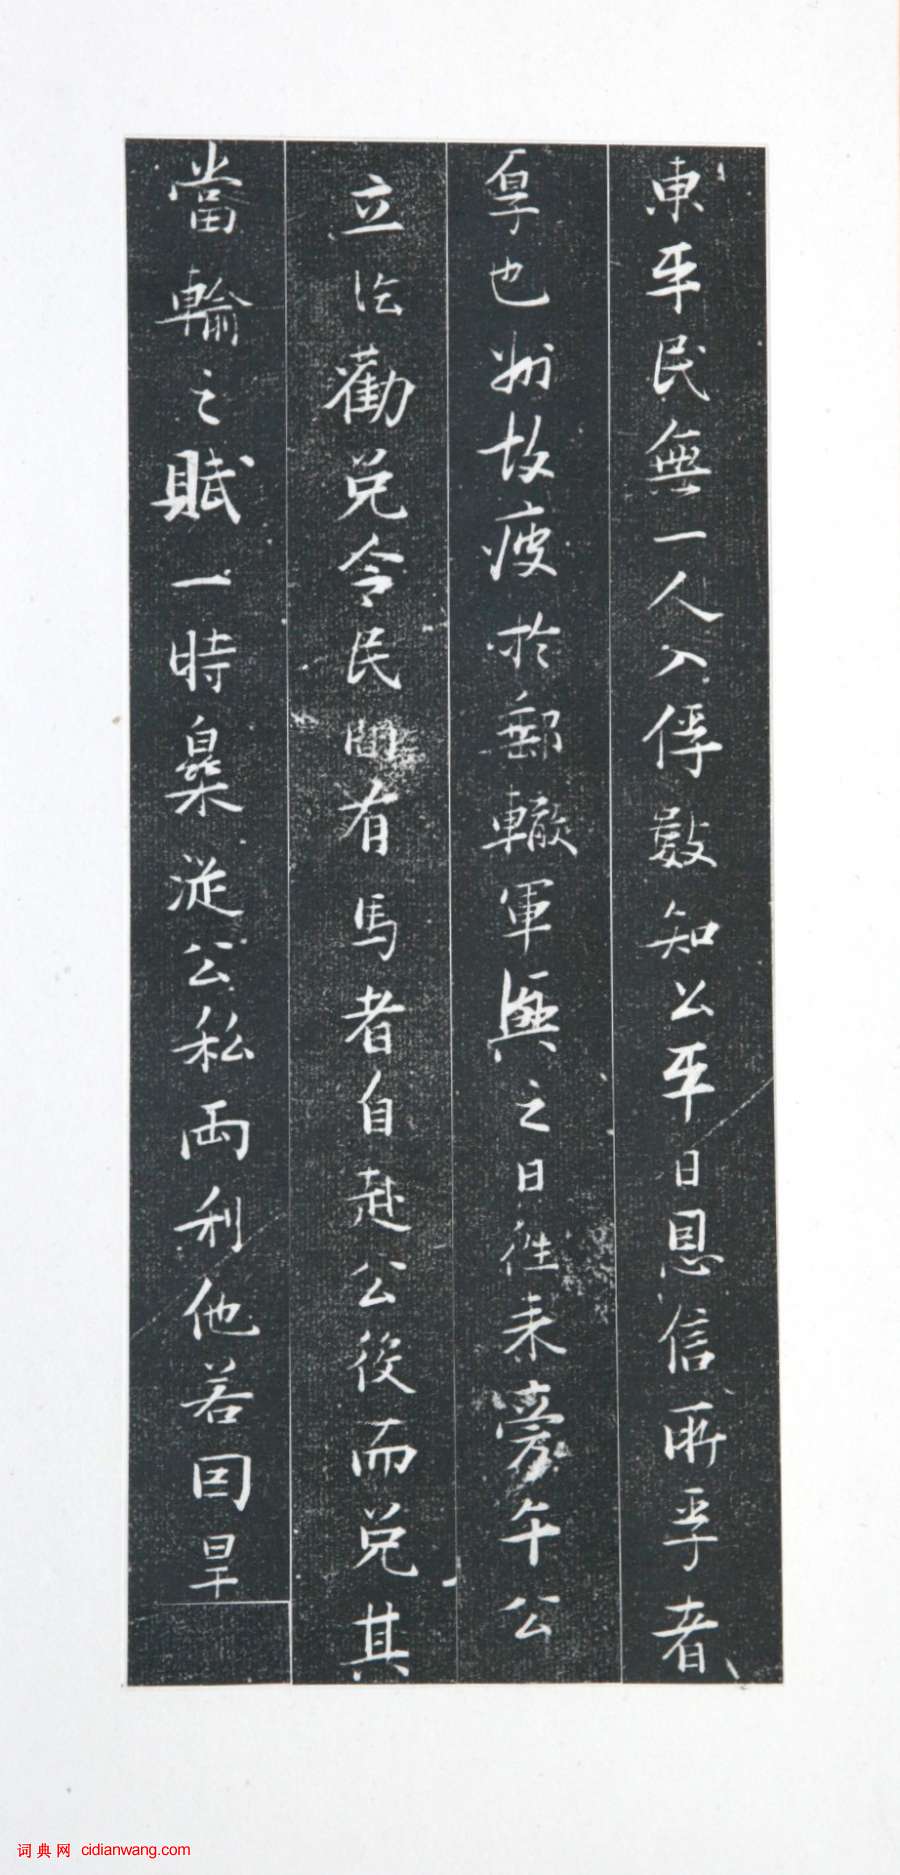 東平民無一人入俘數知公平日恩信所孚者
厚也州故疲於郵轍軍興之日往来旁午公
立法勸兌令民間有馬者自赴公役而兌其
當輸之賦一時臬從公私両利他若因旱
词典网 cidianwang.com